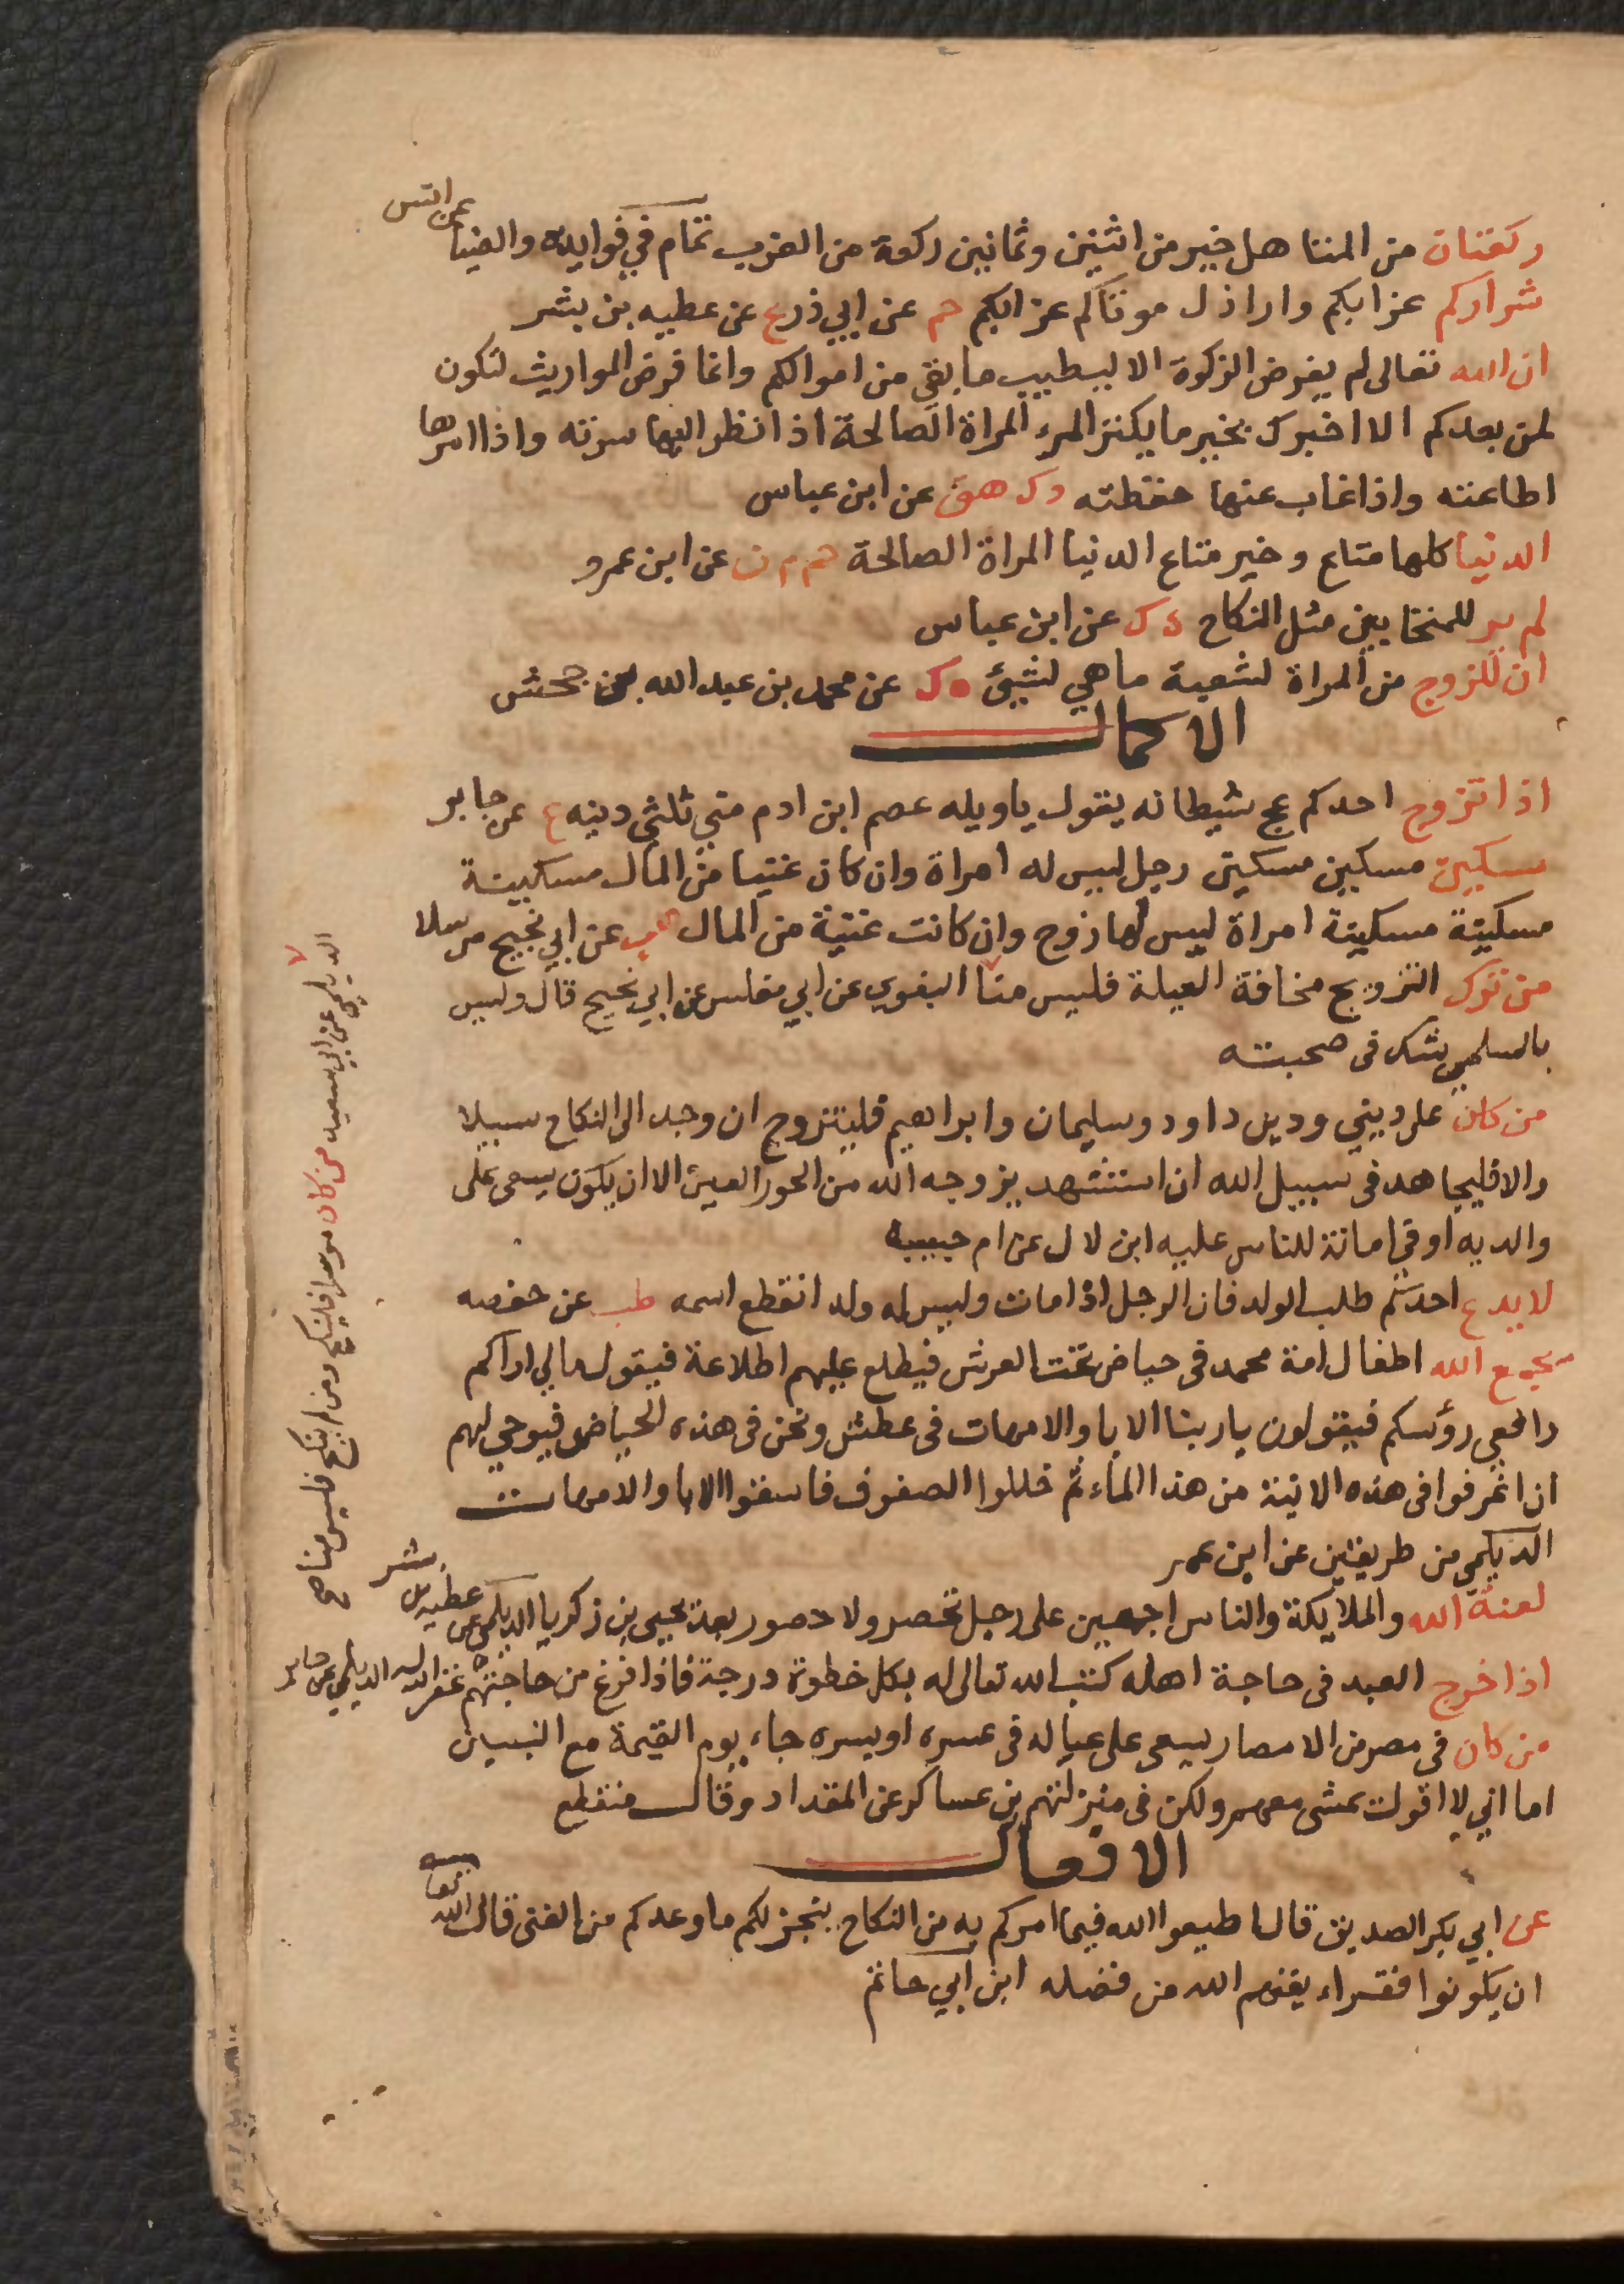 ركعتان من المتاهل خير من اثنين وثمانين ركعة من العزب تمام في فوايده والضيا عن انس
شراركم عزابكم واراذل موتاكم عزابكم حم عن ابي ذر ع عن عطيه بن بشر
ان الله تعالى لم يفرض الزكوة الا ليطيب ما بقي من اموالكم وانما فرض المواريث لتكون
لمن بعدكم الا اخبرك بخير ما يكنز المرء المراة الصالحة اذا نظر اليها سرته واذا امرها
اطاعته واذا غاب عنها حفظته د ك هق عن ابن عباس
الدنيا كلها متاع وخير متاع الدنيا المراة الصالحة حم م ن عن ابن عمرو
لم ير للمتحابين مثل النكاح ه ك عن ابن عباس
ان للزوج من المراة لشعبة ما هي لشيئ ه ك عن محمد بن عبد الله بن جحش
الاكمال
اذا تزوج احدكم عج شيطانه يقول ياويله عصم ابن ادم مني ثلثي دينه ع عن جابر
مسكين مسكين مسكين رجل ليس له امراة وان كان غنيا من المال مسكينة
مسكينة مسكينة امراة ليس لها زوج وان كانت غنية من المال هب عن ابي نجيح مرسلا
من ترك التزويج مخافة العيلة فليس منا البغوي عن ابي مغلس عن ابي نجيح قال وليس
بالسلمي يشك في صحبته
من كان على ديني ودين داود وسليمان وابراهيم فليتزوج ان وجد الى النكاح سبيلا
والا فليجاهد في سبيل الله ان استشهد يزوجه الله من الحور العين الا ان يكون يسعى على
والديه او في امانة للناس عليه ابن لال عن ام حبيبه
لا يدع احدكم طلب الولد فان الرجل اذا مات وليس له ولد انقطع اسمه طب عن حفصه
يجمع الله اطفال امة محمد في حياض تحت العرش فيطلع عليهم اطلاعة فيقول ما لي اراكم
رافعي رؤسكم فيقولون ياربنا الابا والامهات في عطش ونحن في هذه الحياض فيوحي لهم
ان اغرفوا في هذه الانية من هذا الماء ثم خللوا الصفوف فاسقوا الابا والامهات
الديلمي من طريقين عن ابن عمر
لعنة الله والملايكة والناس اجمعين على رجل تحصر ولا حصور بعد يحيى بن زكريا الديلمي عن عطيه بن بشر
اذا خرج العبد في حاجة اهله كتب الله تعالى له بكل خطوة درجة فاذا فرغ من حاجتهم غفر الله له الديلمي عن جابر
من كان في مصر من الامصار يسعى على عياله في عسره او يسره جاء يوم القيمة مع النبيين
اما اني لا اقول يمشي معهم ولكن في منزلتهم بن عساكر عن المقداد وقال منقطع
الافعال
عن ابي بكر الصديق قال اطيعوا الله فيما امركم به من النكاح ينجز لكم ما وعدكم من الغنى قال الله تعالى
ان يكونوا فقراء يغنهم الله من فضله ابن ابي حاتم
الديلمي عن ابي سعيد من كان موسرا فلينكح ومن لم ينكح فليس منا صح